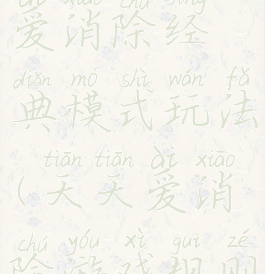 ài xiāo chú jīng
爱消除经
diǎn mó shì wán fǎ
典模式玩法
tiān tiān ài xiāo
(天天爱消
chú yóu xì guī zé
除游戏规则